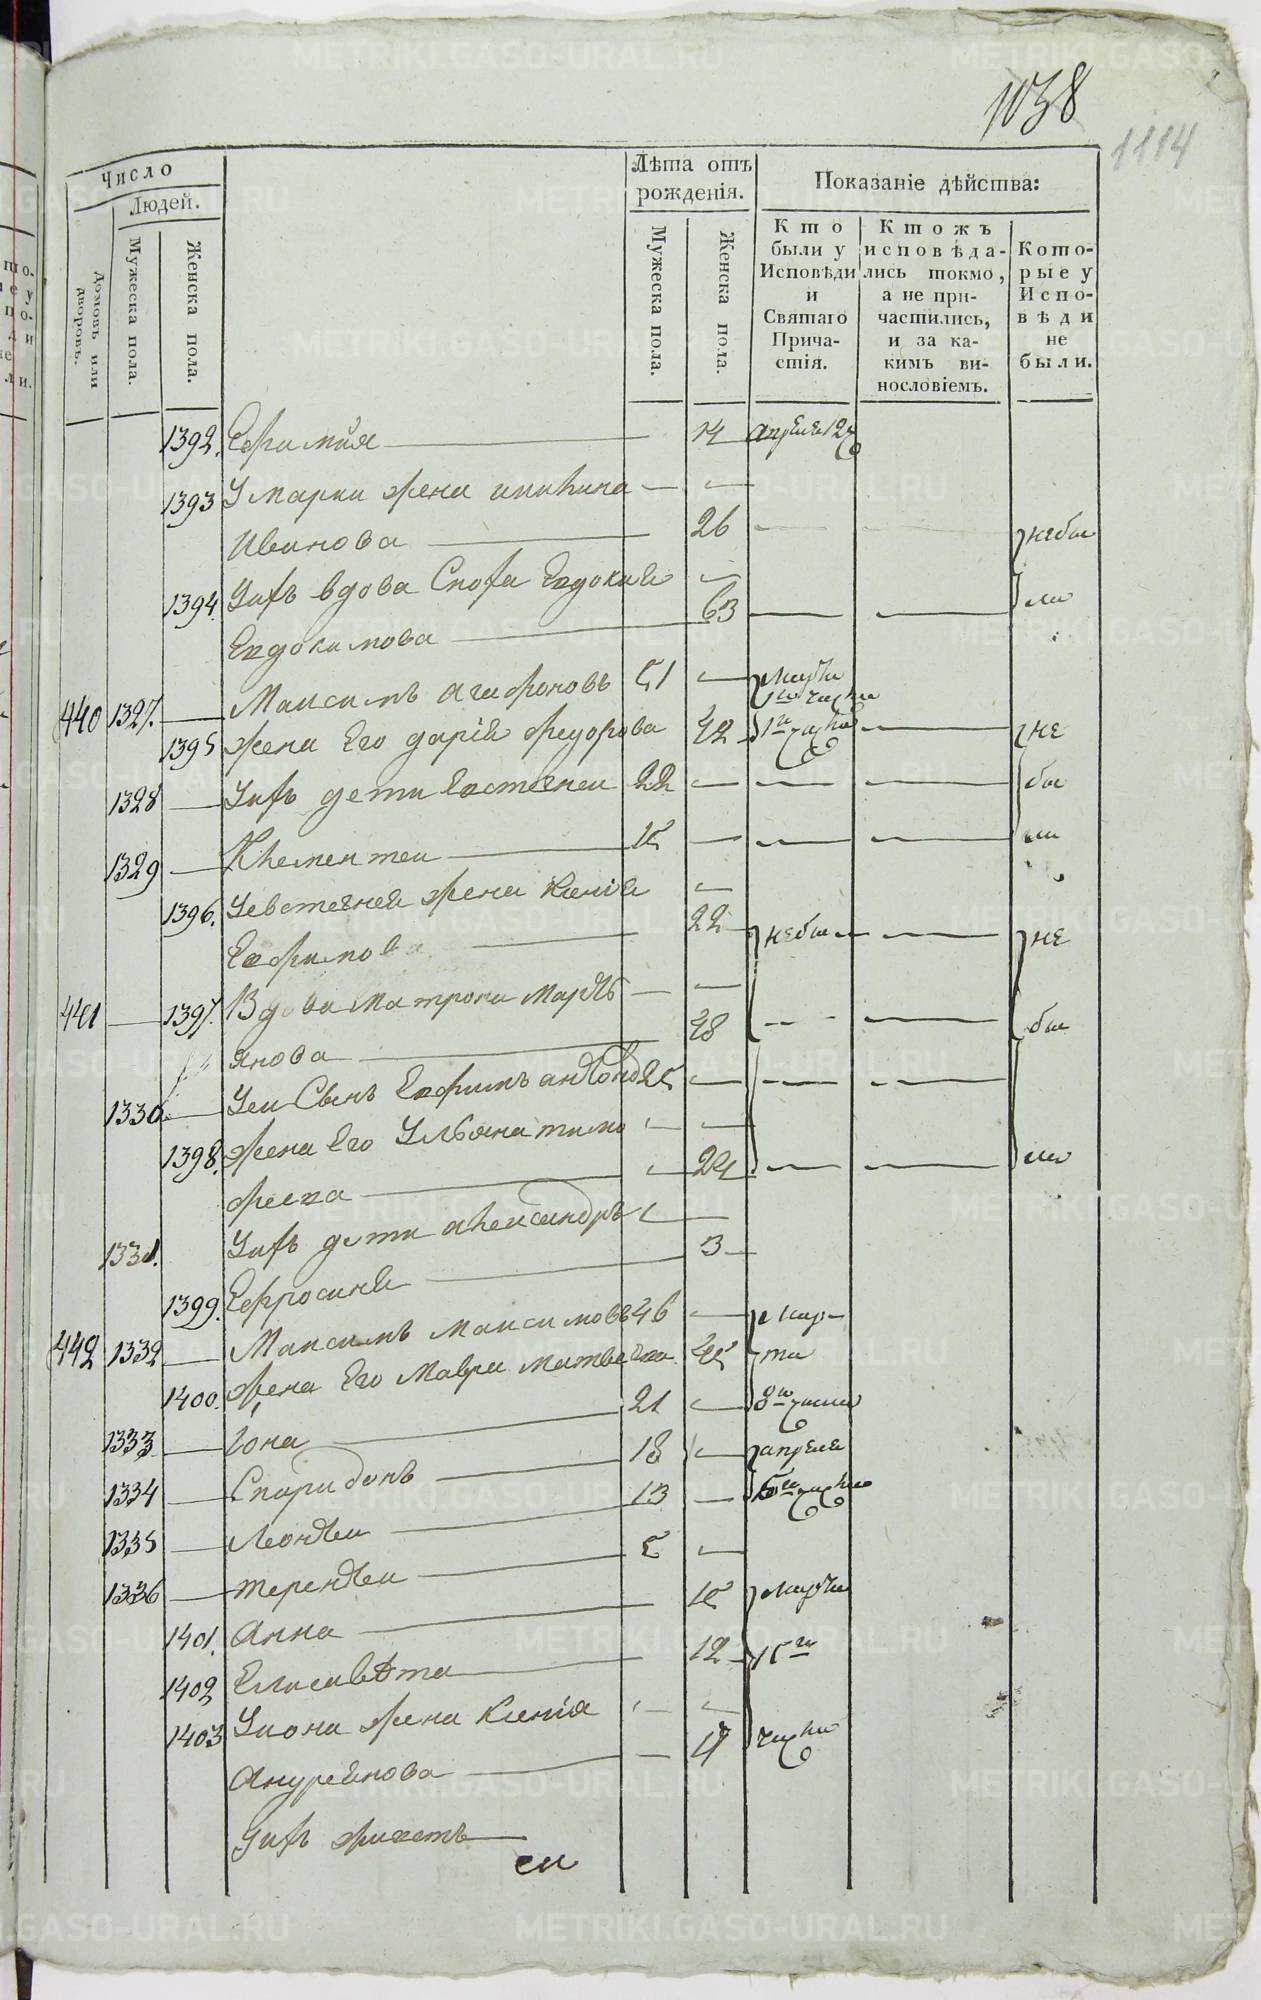 1038
1114
Число
Людей.
домовъ или дворовъ.
Мужеска пола.
Женска пола.
Лѣта отъ рожденія.
Мужеска пола.
Женска пола.
Показаніе дѣйства:
Кто были у Исповѣди и Святаго Причастія.
Ктожъ исповѣдались токмо, а не причастились, и за какимъ винословіемъ.
Которые у Исповѣди не были.
1392. Ефимия 14 апреля 12
1393 У марки жена
Иванова 26 небы
1394. У нихъ вдова Евдокия ли
Евдокимова 63
440 1327. Максимъ Агафоновъ 51 марта
1395 жена Его дарїя федорова 42 не
1328 У нихъ дети Евстегнеи 22 бы
1329 Клементеи 15 ли
1396. У евстегнея жена Ксения
Ефимова 22 небы не
441 1397. Вдова Матрона Мартъ
янова 48 бы
1330 Уеи Сынъ Ефимъ 25
1398. жена Его Ульяна тимо
феева 24 ли
1331. У нихъ дети александръ
3
1399. Ефросиния
442 1332 Максимъ Максимовъ 46 мар
1400. жена Его Мавра Матвеева 45 та
1333 Іона 21 8го числа
1334 Спиридонъ 18 апреля
1335 Леонтеи 13
1336 терентеи 5
1401. Анна 15 марта
1402 Елисавѣта 12 15го
1403 У иона жена Ксения
Андреянова числа
У нихъ живетъ